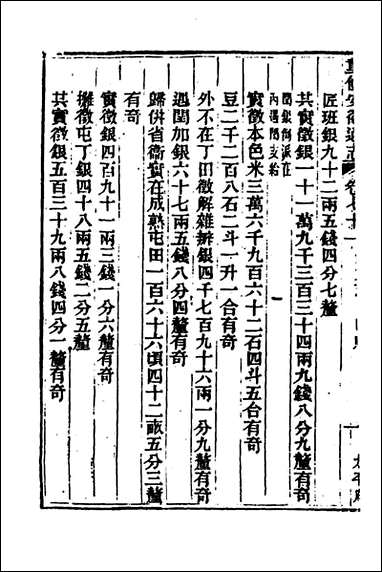 重修安徽通志 卷七十
匠班銀九十二兩五錢四分七釐
其實徵銀一十一萬九千三百三十四兩九錢八分九釐有奇
閏銀均派在
內遇閏支給
實徵本色米三萬六千九百六十二石四斗五合有奇
豆二千二百八石二斗一升一合有奇
外不在丁田徵解雜辦銀四千七百九十六兩一分九釐有奇
遇閏加銀六十七兩五錢八分四釐有奇
歸併省衛實在成熟屯田一百六十六頃四十二畝五分三釐
有奇
實徵銀四百九十一兩三錢一分六釐有奇
攤徵屯丁銀四十八兩五錢二分五釐
其實徵銀五百三十九兩八錢四分一釐有奇